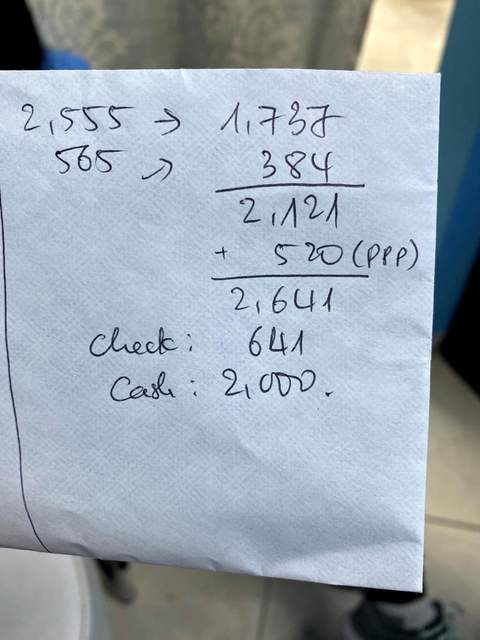 2,555 → 1,737
565 → 384
2,121
+ 520 (PPP)
2,641
Check: 641
Cash: 2,000.